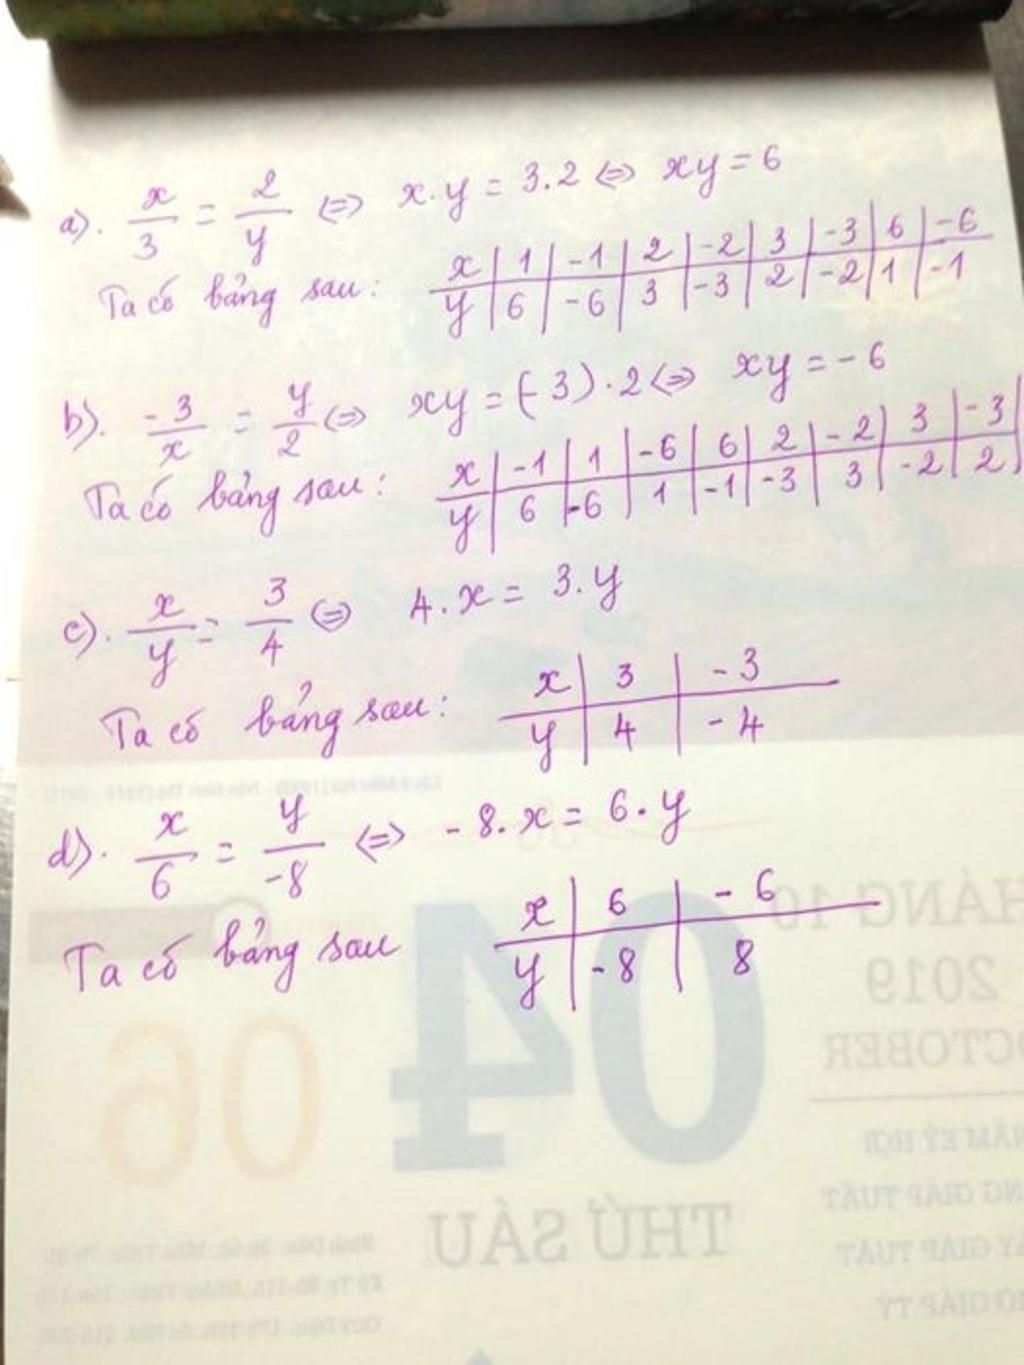 a). x/3 = 2/y <=> x.y = 3.2 <=> xy = 6
Ta có bảng sau:
x | 1 | -1 | 2 | -2 | 3 | -3 | 6 | -6
y | 6 | -6 | 3 | -3 | 2 | -2 | 1 | -1
b). -3/x = y/2 <=> xy = (-3).2 <=> xy = -6
Ta có bảng sau:
x | -1 | 1 | -6 | 6 | 2 | -2 | 3 | -3
y | 6 | -6 | 1 | -1 | -3 | 3 | -2 | 2
c). x/y = 3/4 <=> 4.x = 3.y
Ta có bảng sau:
x | 3 | -3
y | 4 | -4
d). x/6 = y/-8 <=> -8.x = 6.y
Ta có bảng sau
x | 6 | -6
y | -8 | 8
THÁNG 10
2019
OCTOBER
04
06
THỨ SÁU
NĂM KỶ HỢI
GIÁP TUẤT
GIÁP TUẤT
GIÁP TÝ